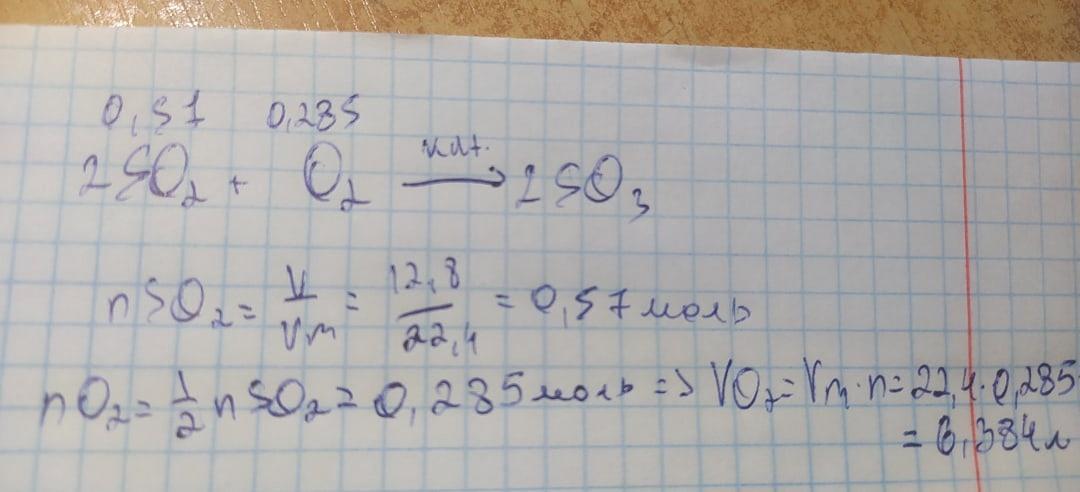 0,57 0,285
2SO₂ + O₂ —кат.→ 2SO₃
nSO₂ = V/Vm = 12,8/22,4 = 0,57 моль
nO₂ = 1/2 nSO₂ = 0,285 моль => VO₂ = Vm · n = 22,4 · 0,285
= 6,384 л